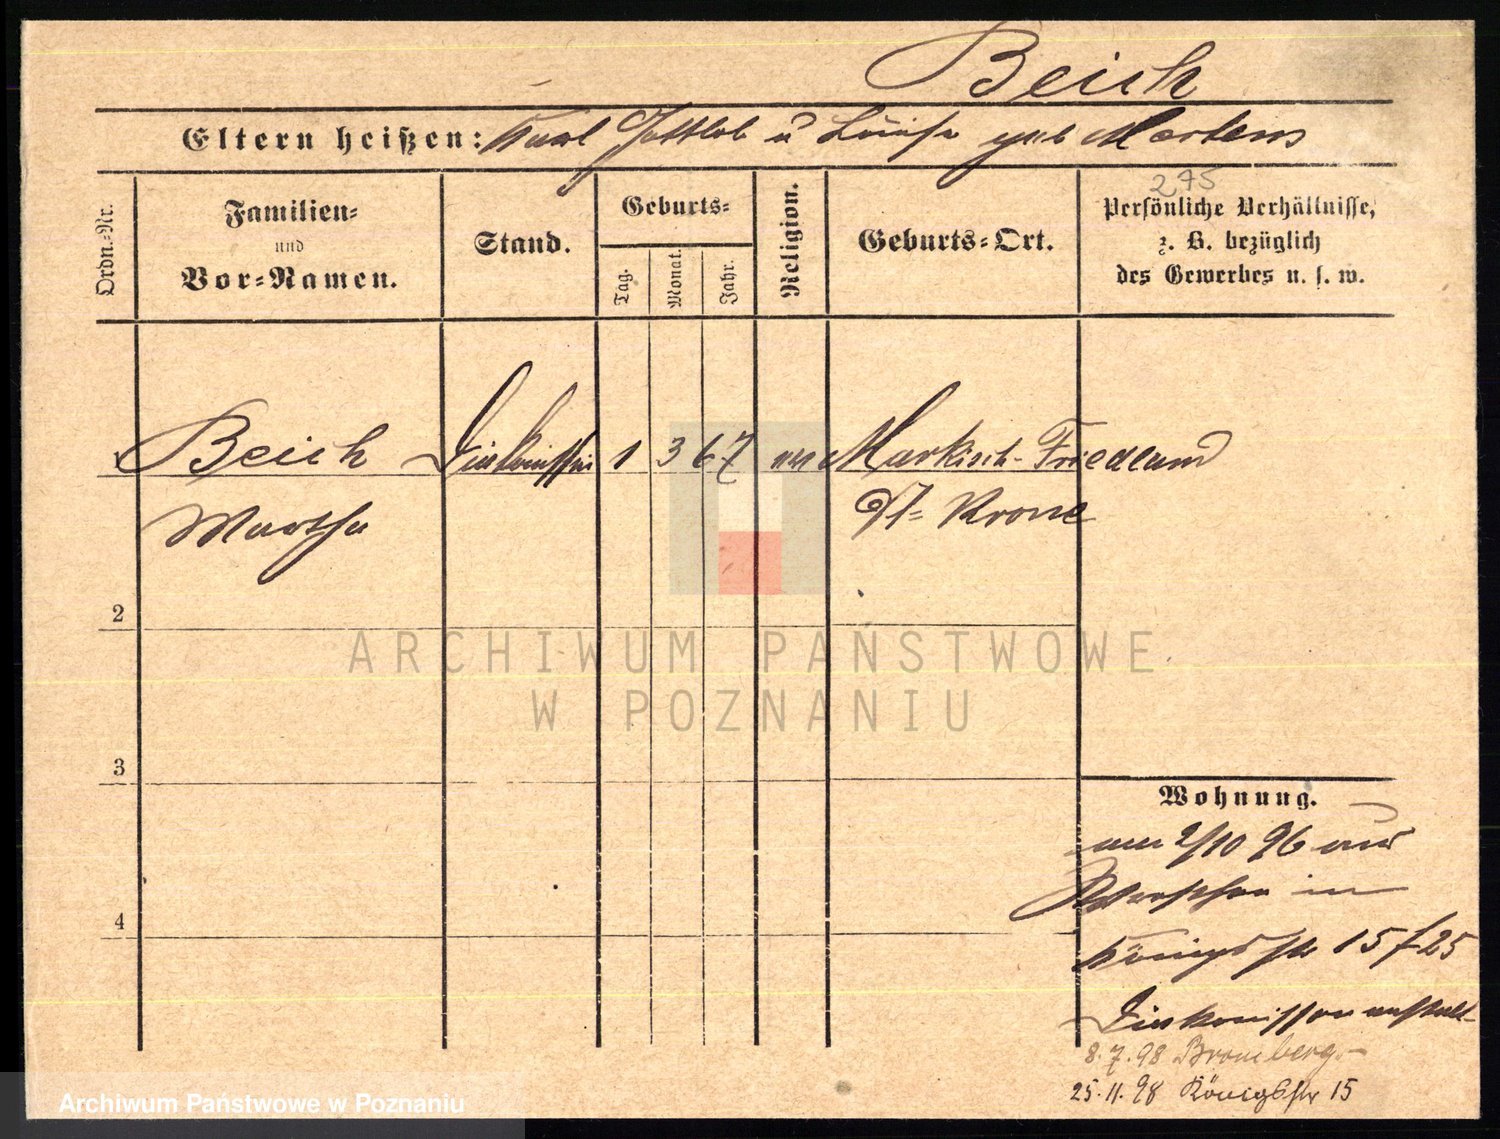 Beich
Eltern heißen: Karl Gottlob u Luise geb Mertens
275
Ordn.-Nr.
Familien-
und
Vor-Namen.
Stand.
Geburts-
Tag.
Monat.
Jahr.
Religion.
Geburts-Ort.
Persönliche Verhältnisse,
z. B. bezüglich
des Gewerbes u. s. w.
1 Beich Diakonissin 1 3 67 ev Markisch-Friedland
Martha Dt= Krone
2
3
4
Wohnung.
am 2/10 96 aus
in
Königsstr 15 f 25
Diakonissenanstalt
8.7.98 Bromberg
25.11.98 Königsstr 15
ARCHIWUM PAŃSTWOWE
W POZNANIU
Archiwum Państwowe w Poznaniu